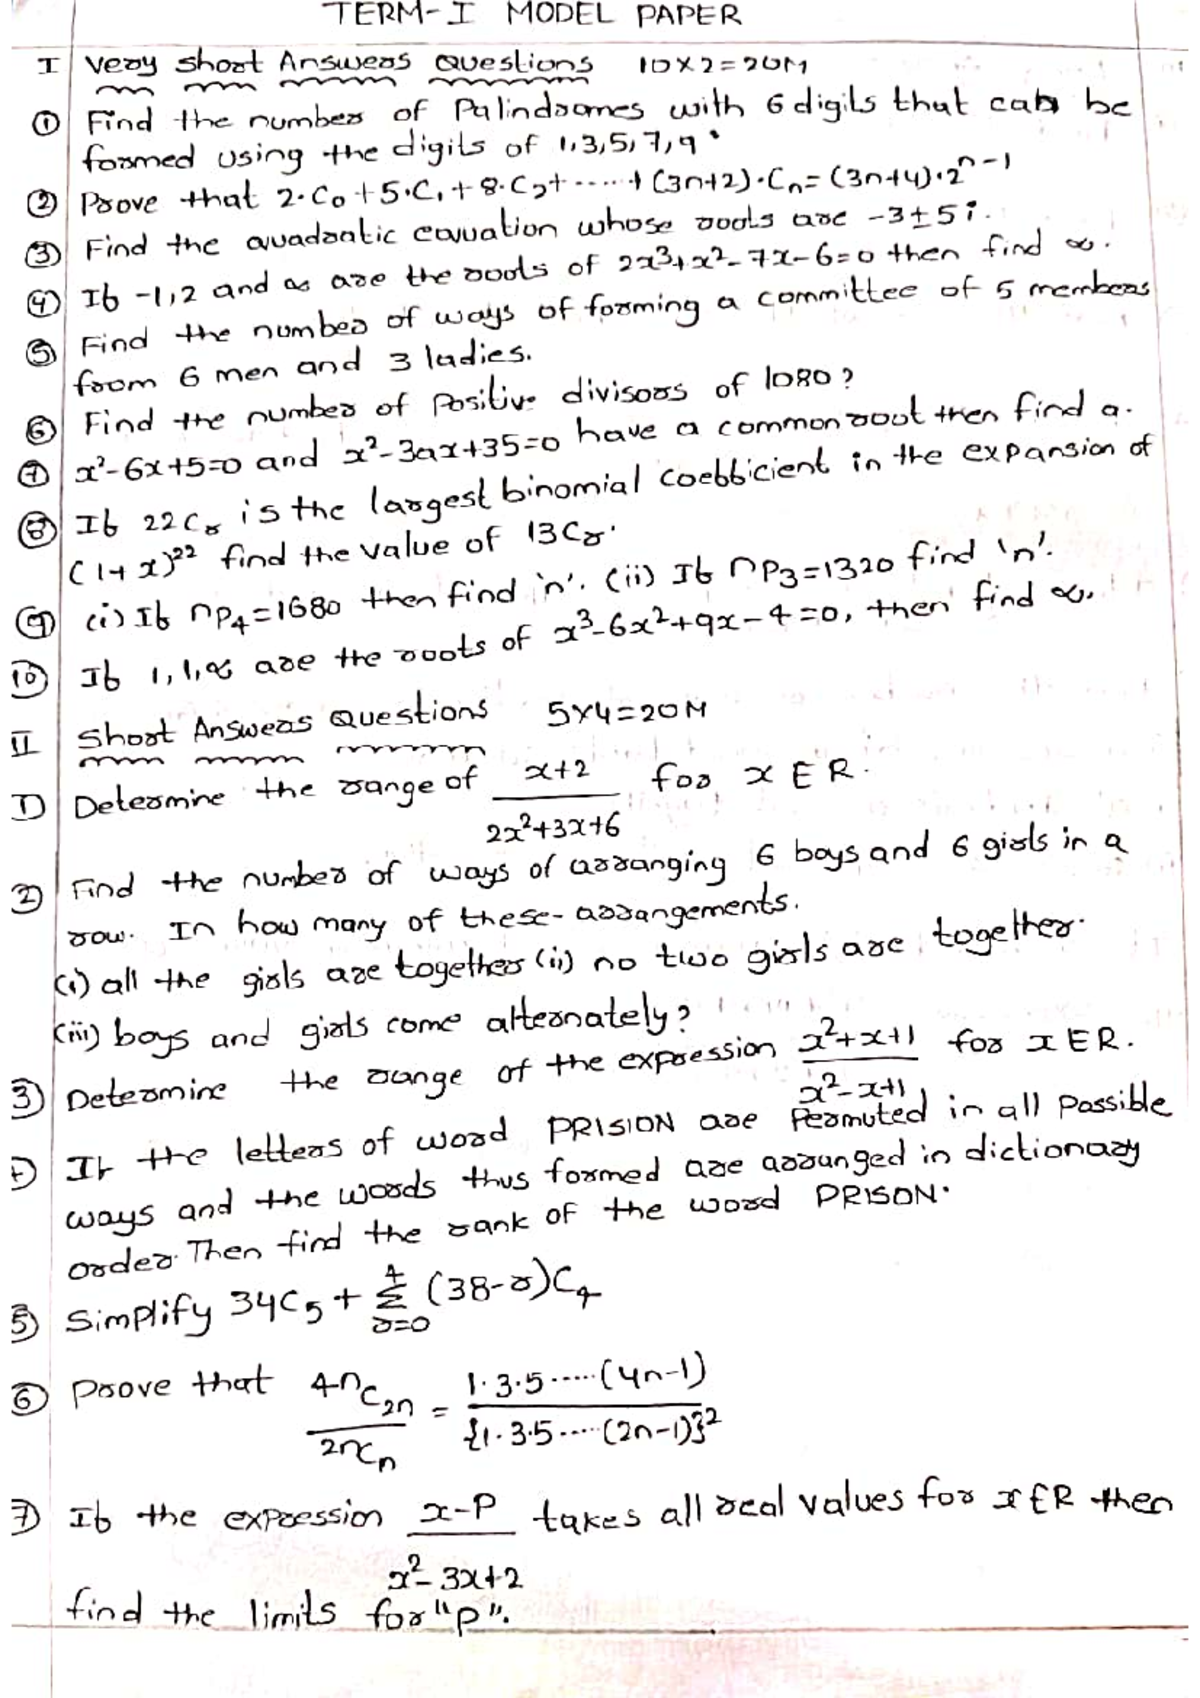 TERM-I MODEL PAPER
I Very short Answers Questions 10X2=20M
① Find the number of Palindromes with 6 digits that can be
formed using the digits of 1,3,5,7,9.
② Prove that 2.C₀+5.C₁+8.C₂+......+(3n+2).Cₙ=(3n+4).2ⁿ⁻¹
③ Find the quadratic equation whose roots are -3±5i.
④ If -1,2 and α are the roots of 2x³+x²-7x-6=0 then find α.
⑤ Find the number of ways of forming a committee of 5 members
from 6 men and 3 ladies.
⑥ Find the number of Positive divisors of 1080?
⑦ x²-6x+5=0 and x²-3ax+35=0 have a common root then find a.
⑧ If 22Cᵣ is the largest binomial coefficient in the expansion of
(1+x)²² find the value of 13Cᵣ.
⑨ (i) If nP₄=1680 then find 'n'. (ii) If nP₃=1320 find 'n'.
⑩ If 1,1,α are the roots of x³-6x²+9x-4=0, then find α.
II Short Answers Questions 5X4=20M
① Determine the range of x+2 for x ∈ R.
2x²+3x+6
② Find the number of ways of arranging 6 boys and 6 girls in a
row. In how many of these arrangements.
(i) all the girls are together (ii) no two girls are together.
(iii) boys and girls come alternately?
③ Determine the range of the expression x²+x+1 for x ∈ R.
x²-x+1
④ If the letters of word PRISION are Permuted in all Possible
ways and the words thus formed are arranged in dictionary
order. Then find the rank of the word PRISON.
⑤ Simplify 34C₅+ 4Σr=0 (38-r)C₄
⑥ Prove that 4nC₂ₙ = 1.3.5.....(4n-1)
2nCₙ {1.3.5.....(2n-1)}²
⑦ If the expression x-P takes all real values for x∈R then
x²-3x+2
find the limits for "P".